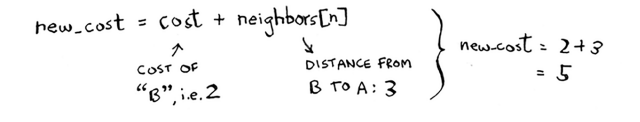 new_cost = cost + neighbors[n]
COST OF
"B", i.e. 2
DISTANCE FROM
B TO A: 3
new_cost = 2+3
= 5